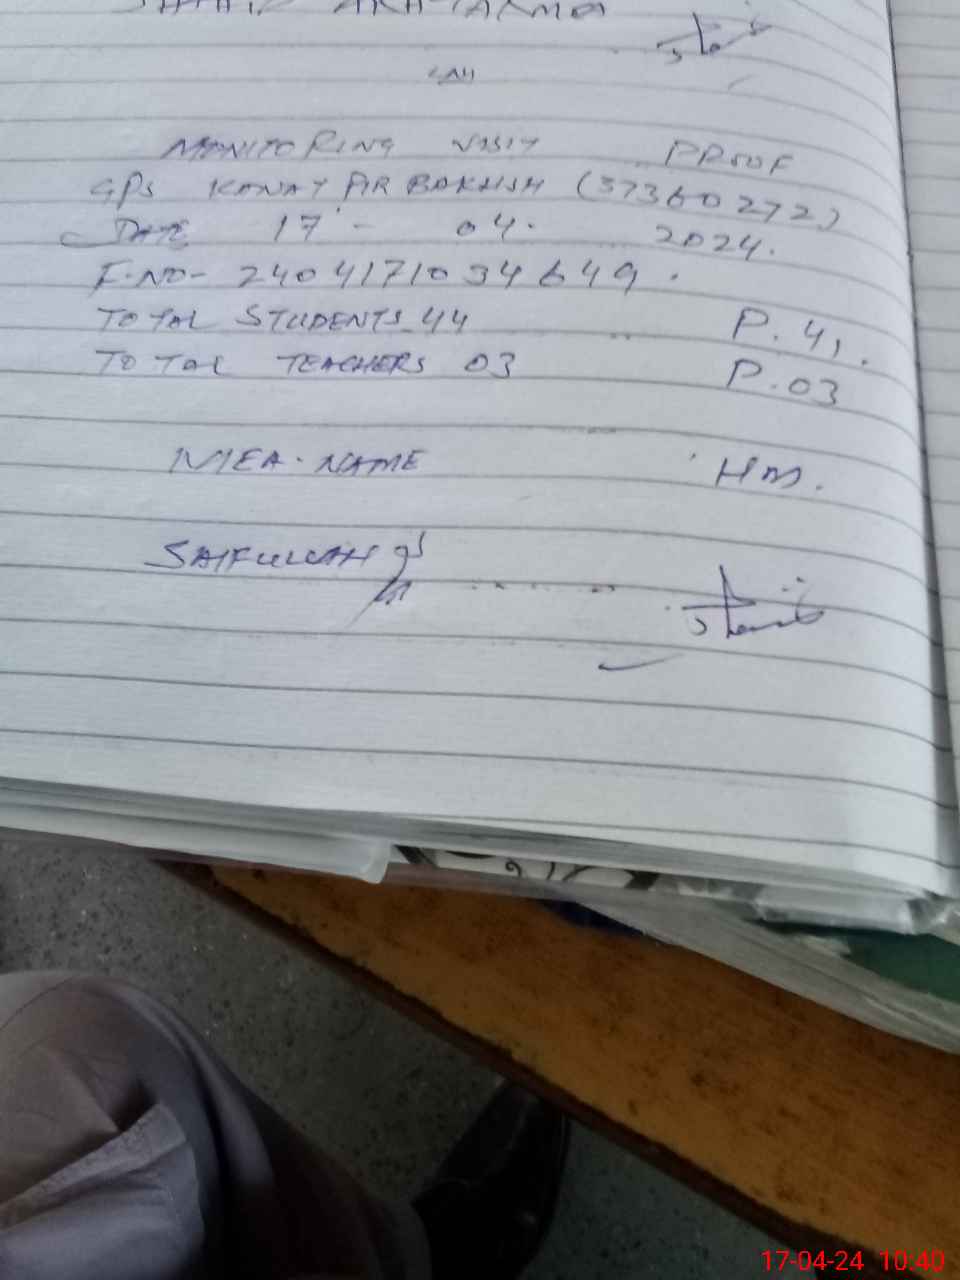 MONITORING VISIT PROOF
GPS KANAY PIR BAKHSH (37360272)
DATE 17 - 04. 2024.
F.NO- 2404171034649.
TOTAL STUDENTS 44 P. 41.
TOTAL TEACHERS 03 P. 03
MEA. NAME HM.
SAIFULLAH
17-04-24 10:40